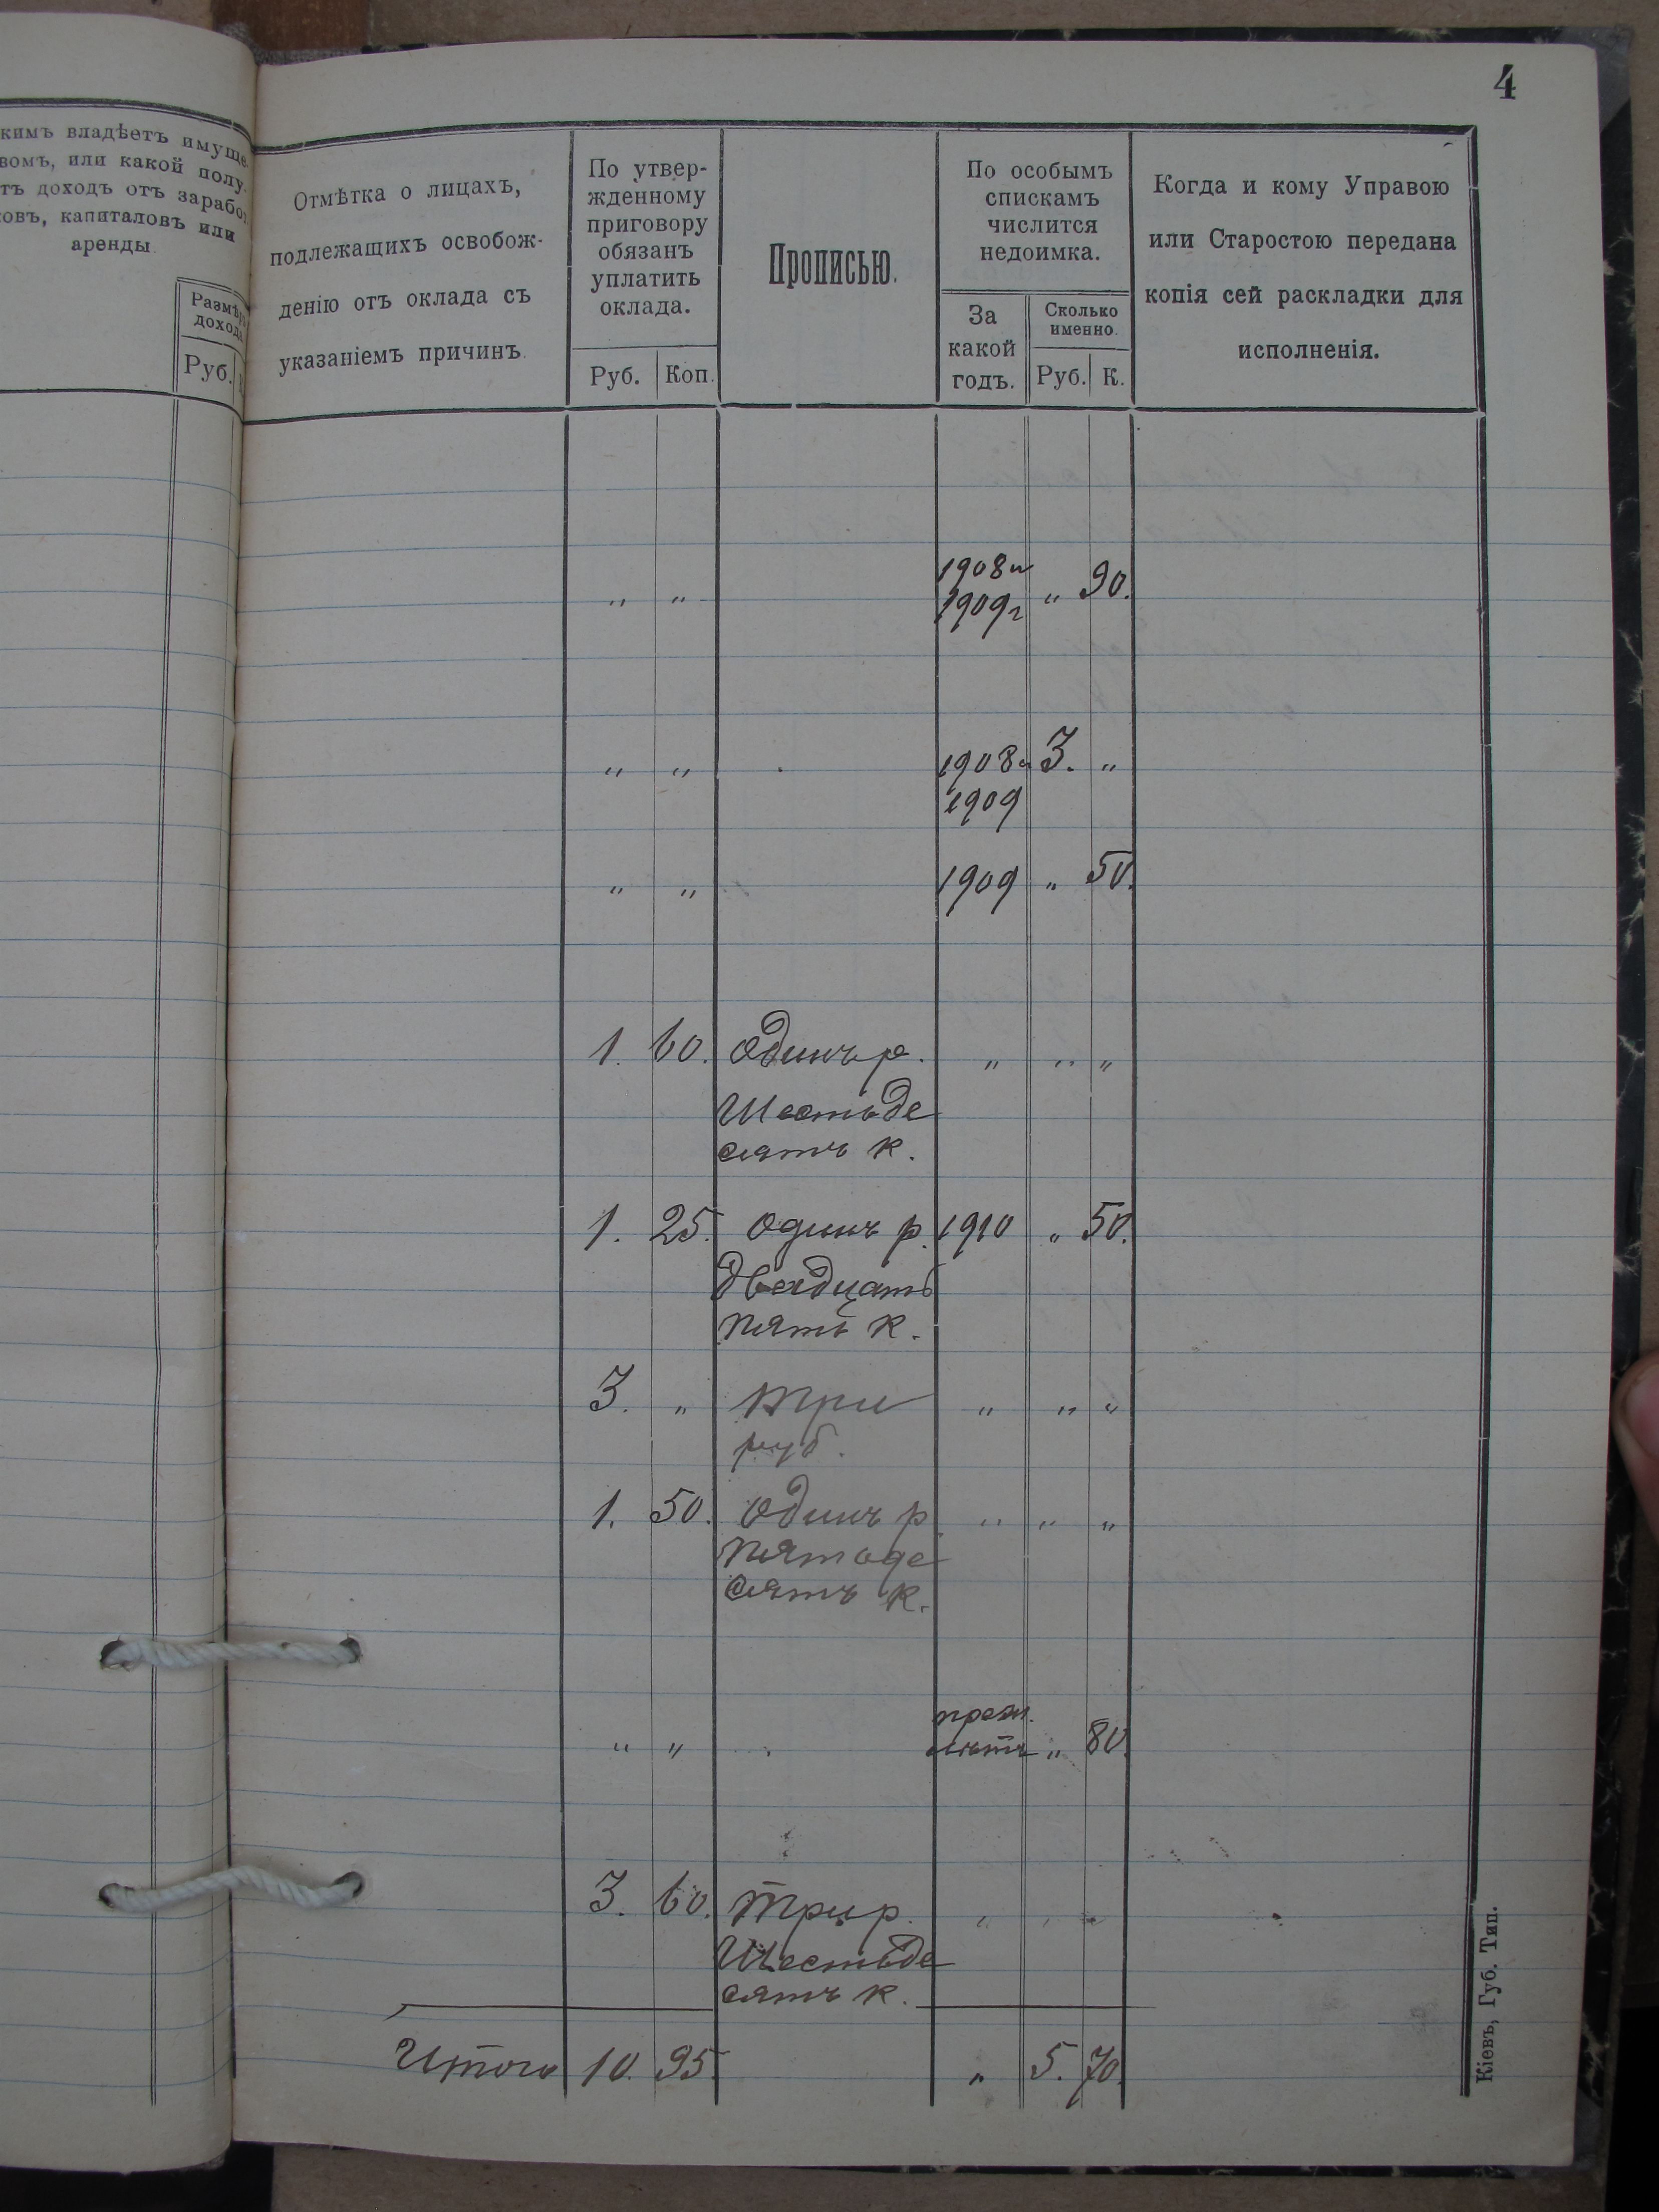 4
кимъ владѣетъ имуще-
вомъ, или какой полу-
тъ доходъ отъ зарабо
ковъ, капиталовъ или
аренды.
Размѣръ
дохода
Руб.
Отмѣтка о лицахъ,
подлежащихъ освобож-
денію отъ оклада съ
указаніемъ причинъ.
По утвер-
жденному
приговору
обязанъ
уплатить
оклада.
Руб. Коп.
Прописью.
По особымъ
спискамъ
числится
недоимка.
За
какой
годъ.
Сколько
именно.
Руб. К.
Когда и кому Управою
или Старостою передана
копія сей раскладки для
исполненія.
1908 и
" " 1909 г " 90.
" " 1908 и 3. "
1909
" " 1909 " 50.
1. 60. Одинъ р. " " "
Шестьде
сятъ к.
1. 25. Одинъ р. 1910 " 50.
Двадцать
пять к.
3. " Три " " "
руб.
1. 50. Одинъ р. " " "
Пятьде
сятъ к.
преж.
" " лѣтъ " 80.
3. 60. Три р. " " "
Шестьде
сятъ к.
Итого 10. 95. " 5. 70.
Кіевъ, Губ. Тип.